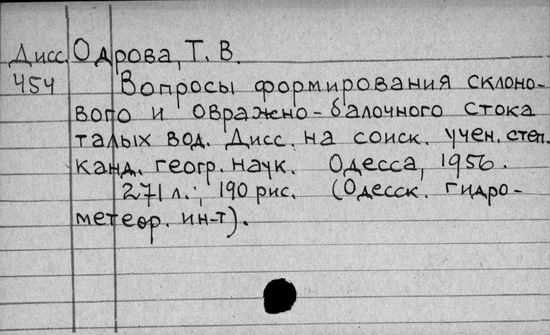 Дисс. Одрова, Т. В.
454 Вопросы формирования склоно-
вого и овражно-балочного стока
талых вод. Дисс. на соиск. учен. степ.
канд. геогр. наук. Одесса, 1956.
271 л.; 190 рис. (Одесск. гидро-
метеор. ин-т).